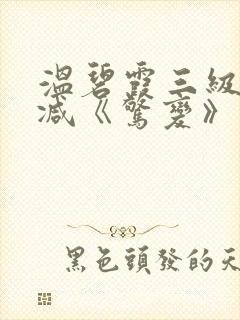 溫碧霞三級
減《驚變》
黑色頭發的天